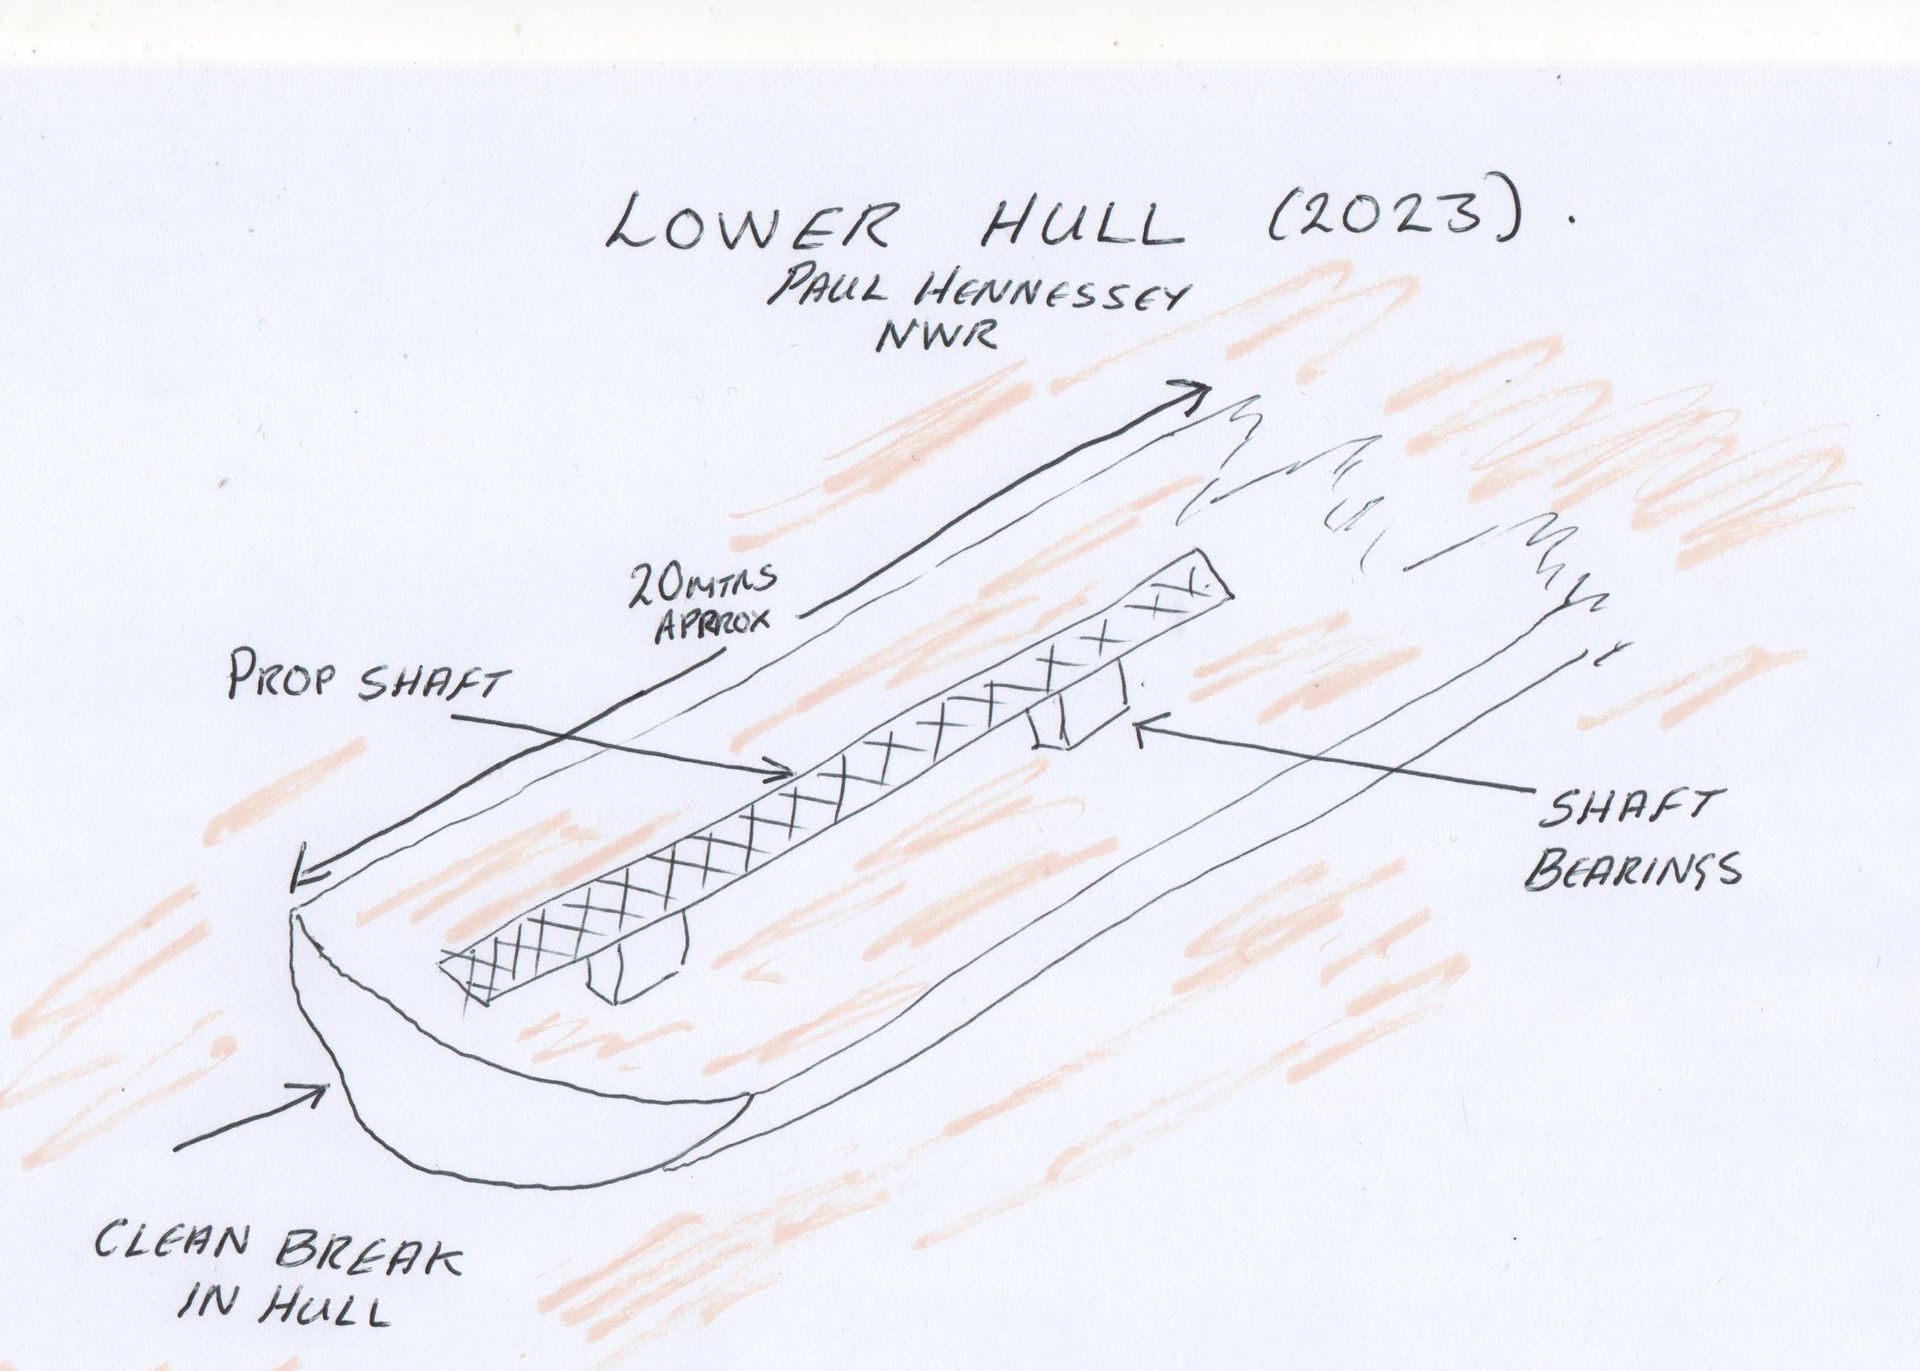 LOWER HULL (2023).
PAUL HENNESSEY
NWR
20MTRS
APRROX
PROP SHAFT
SHAFT
BEARINGS
CLEAN BREAK
IN HULL